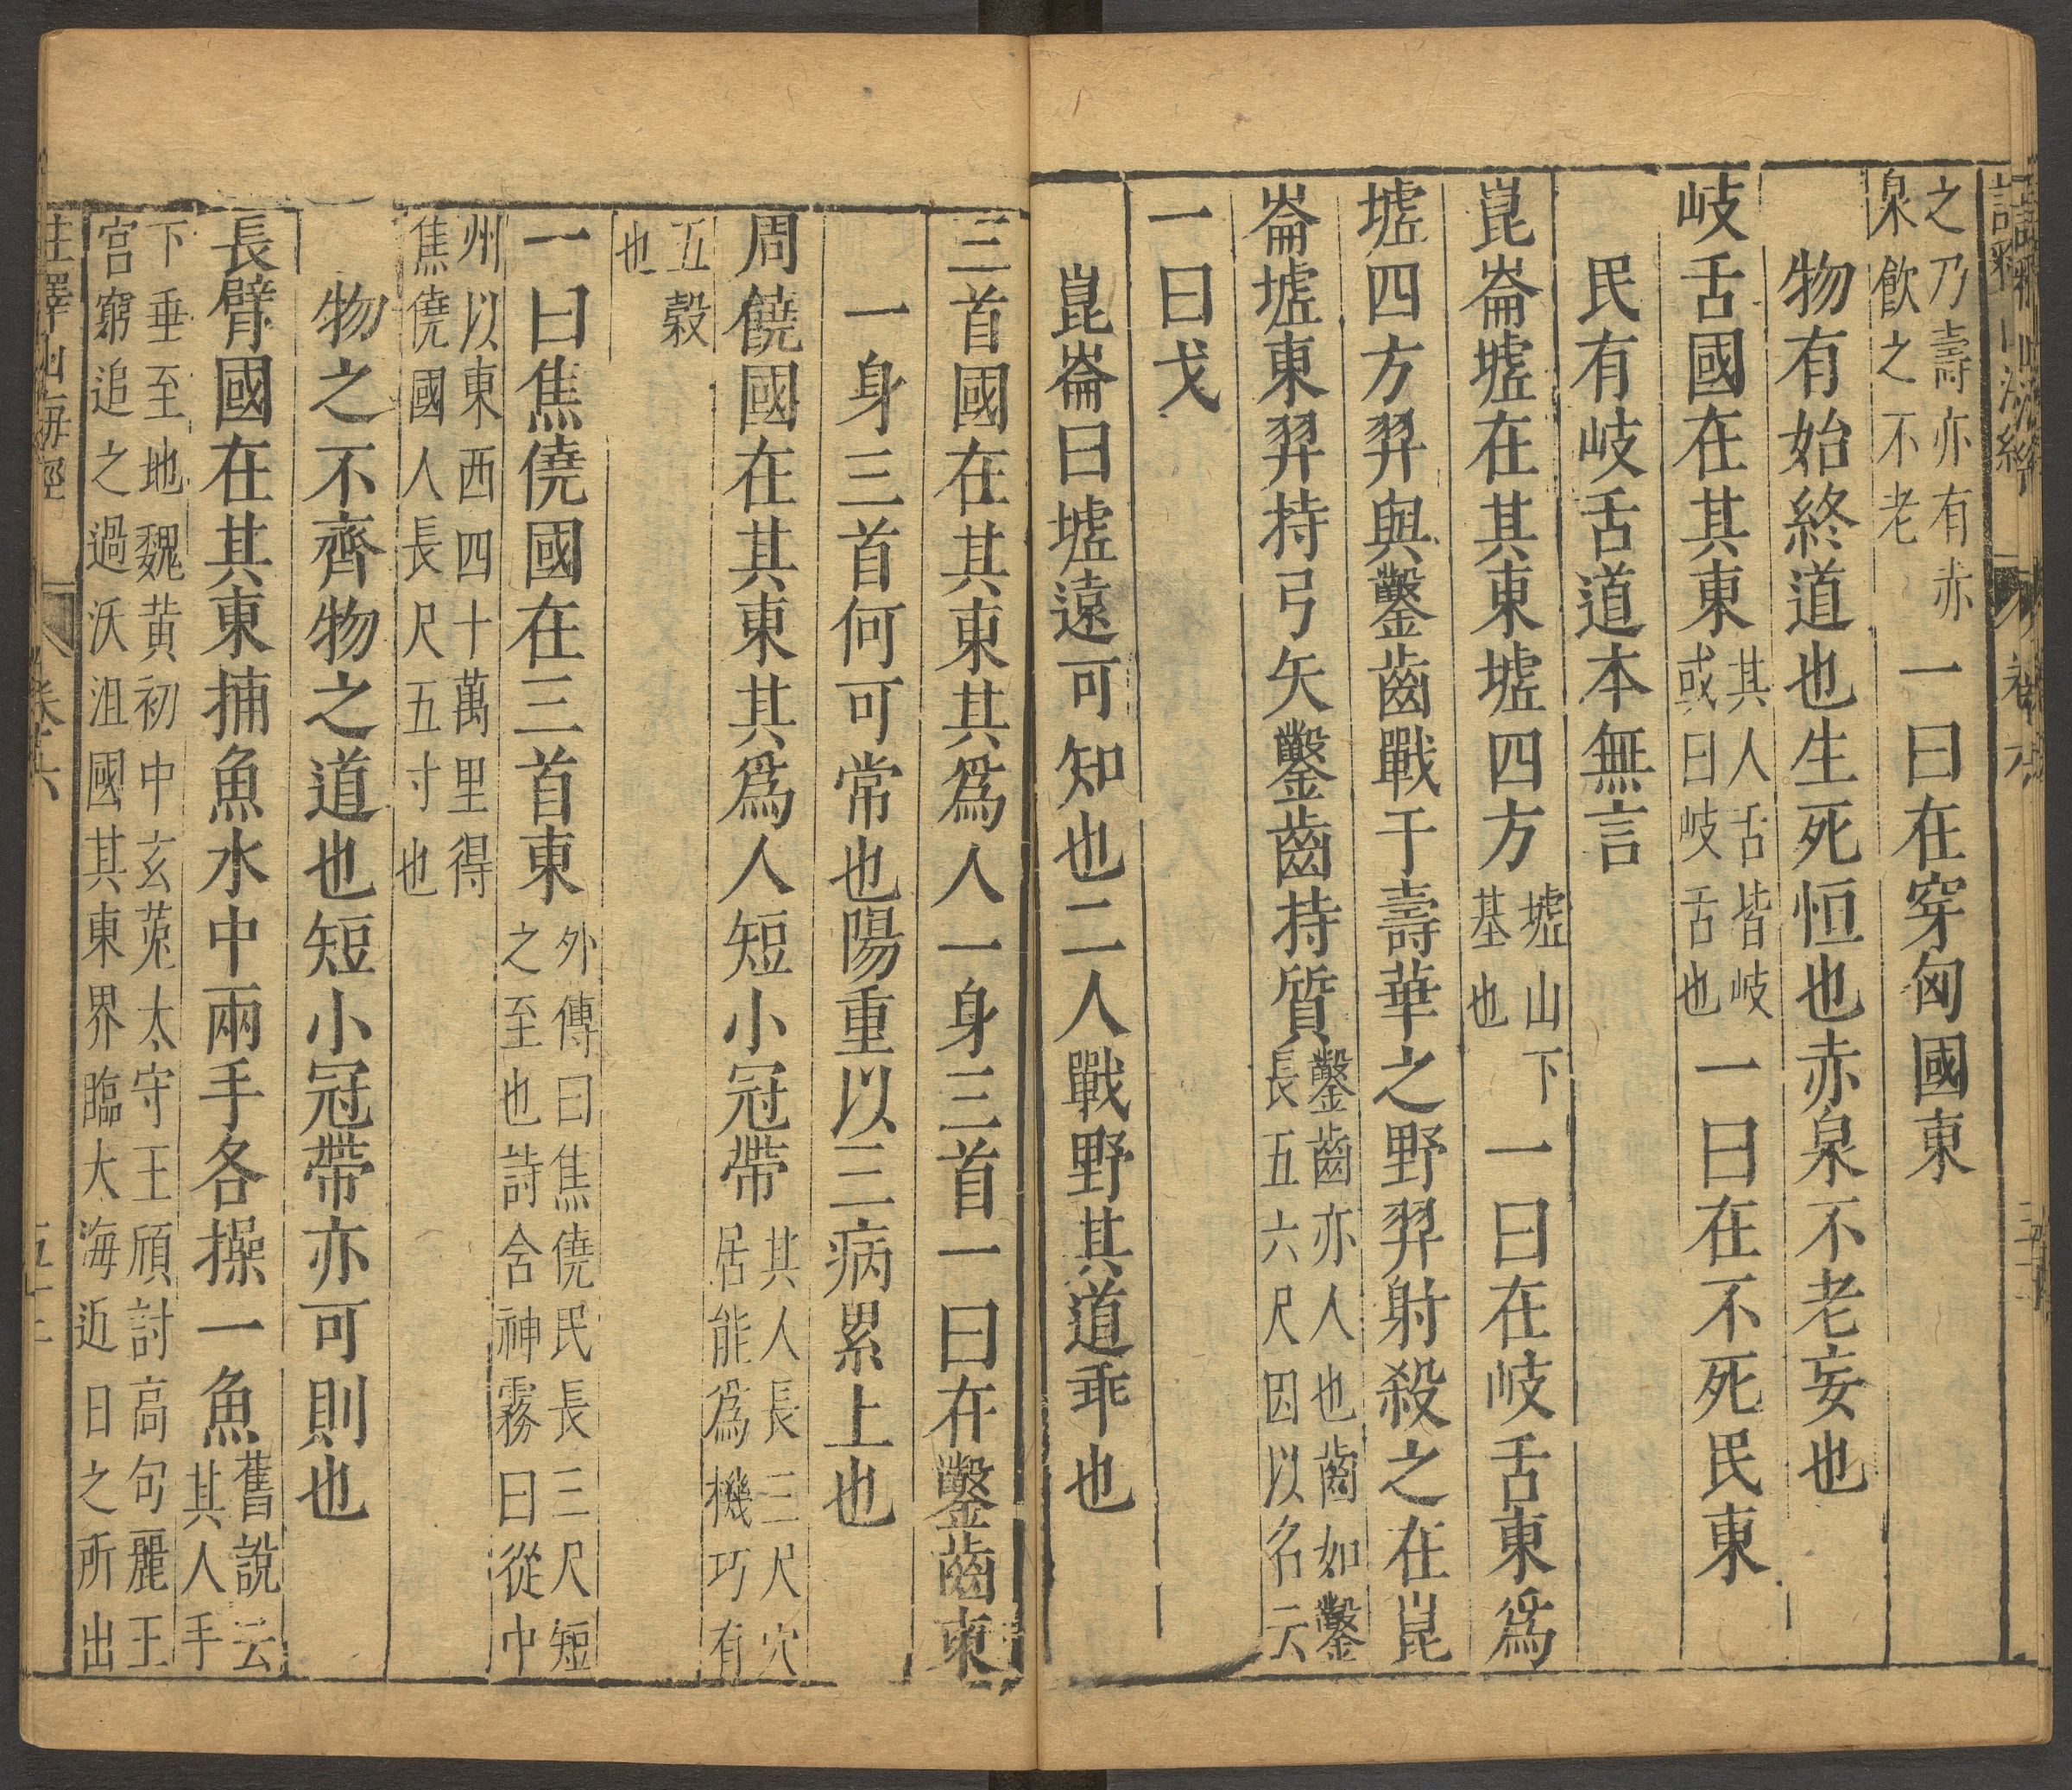 之乃壽亦有赤
泉飮之不老
一曰在穿匈國東
物有始終道也生死恒也赤泉不老妄也
岐舌國在其東
其人舌皆岐
或曰岐舌也
一曰在不死民東
民有岐舌道本無言
崑崙墟在其東墟四方
墟山下
基也
一曰在岐舌東爲
墟四方羿與鑿齒戰于壽華之野羿射殺之在崑
崙墟東羿持弓矢鑿齒持質
鑿齒亦人也齒如鑿
長五六尺因以名云
一曰戈
崑崙曰墟遠可知也二人戰野其道乖也
三首國在其東其爲人一身三首一曰在鑿齒東
一身三首何可常也陽重以三病累上也
周饒國在其東其爲人短小冠帶
其人長三尺穴
居能爲機巧有
五穀
也
一曰焦僥國在三首東
外傳曰焦僥民長三尺短
之至也詩含神霧曰從中
州以東西四十萬里得
焦僥國人長尺五寸也
物之不齊物之道也短小冠帶亦可則也
長臂國在其東捕魚水中兩手各操一魚
舊說云
其人手
下垂至地魏黃初中玄菟太守王頎討高句麗王
宮窮追之過沃沮國其東界臨大海近日之所出